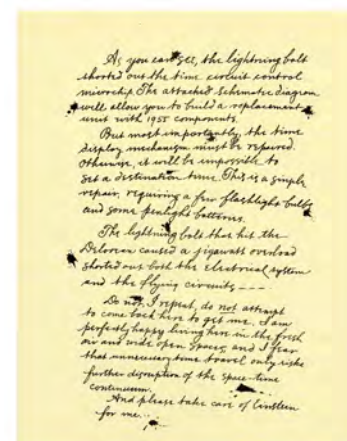 As you can see, the lightning bolt
shorted out the time circuit control
microchip. The attached schematic diagram
will allow you to build a replacement
unit with 1955 components.
But most importantly, the time
display mechanism must be repaired.
Otherwise, it will be impossible to
set a destination time. This is a simple
repair, requiring a few flashlight bulbs
and some penlight batteries.
The lightning bolt that hit the
Delorean caused a jigawatt overload
shorted out both the electrical system
and the flying circuits ---
Do not, I repeat, do not attempt
to come back here to get me. I am
perfectly happy living here in the fresh
air and wide open spaces, and I fear
that unnecessary time travel only risks
further disruption of the space-time
continuum.
And please take care of Einstein
for me...